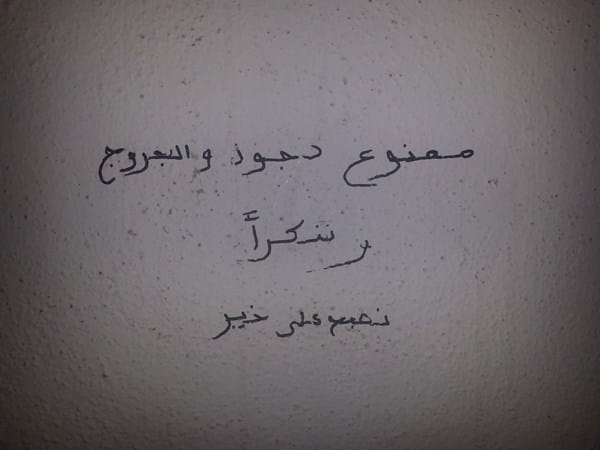 ممنوع دخول والخروج
وشكراً
تصبح على خير